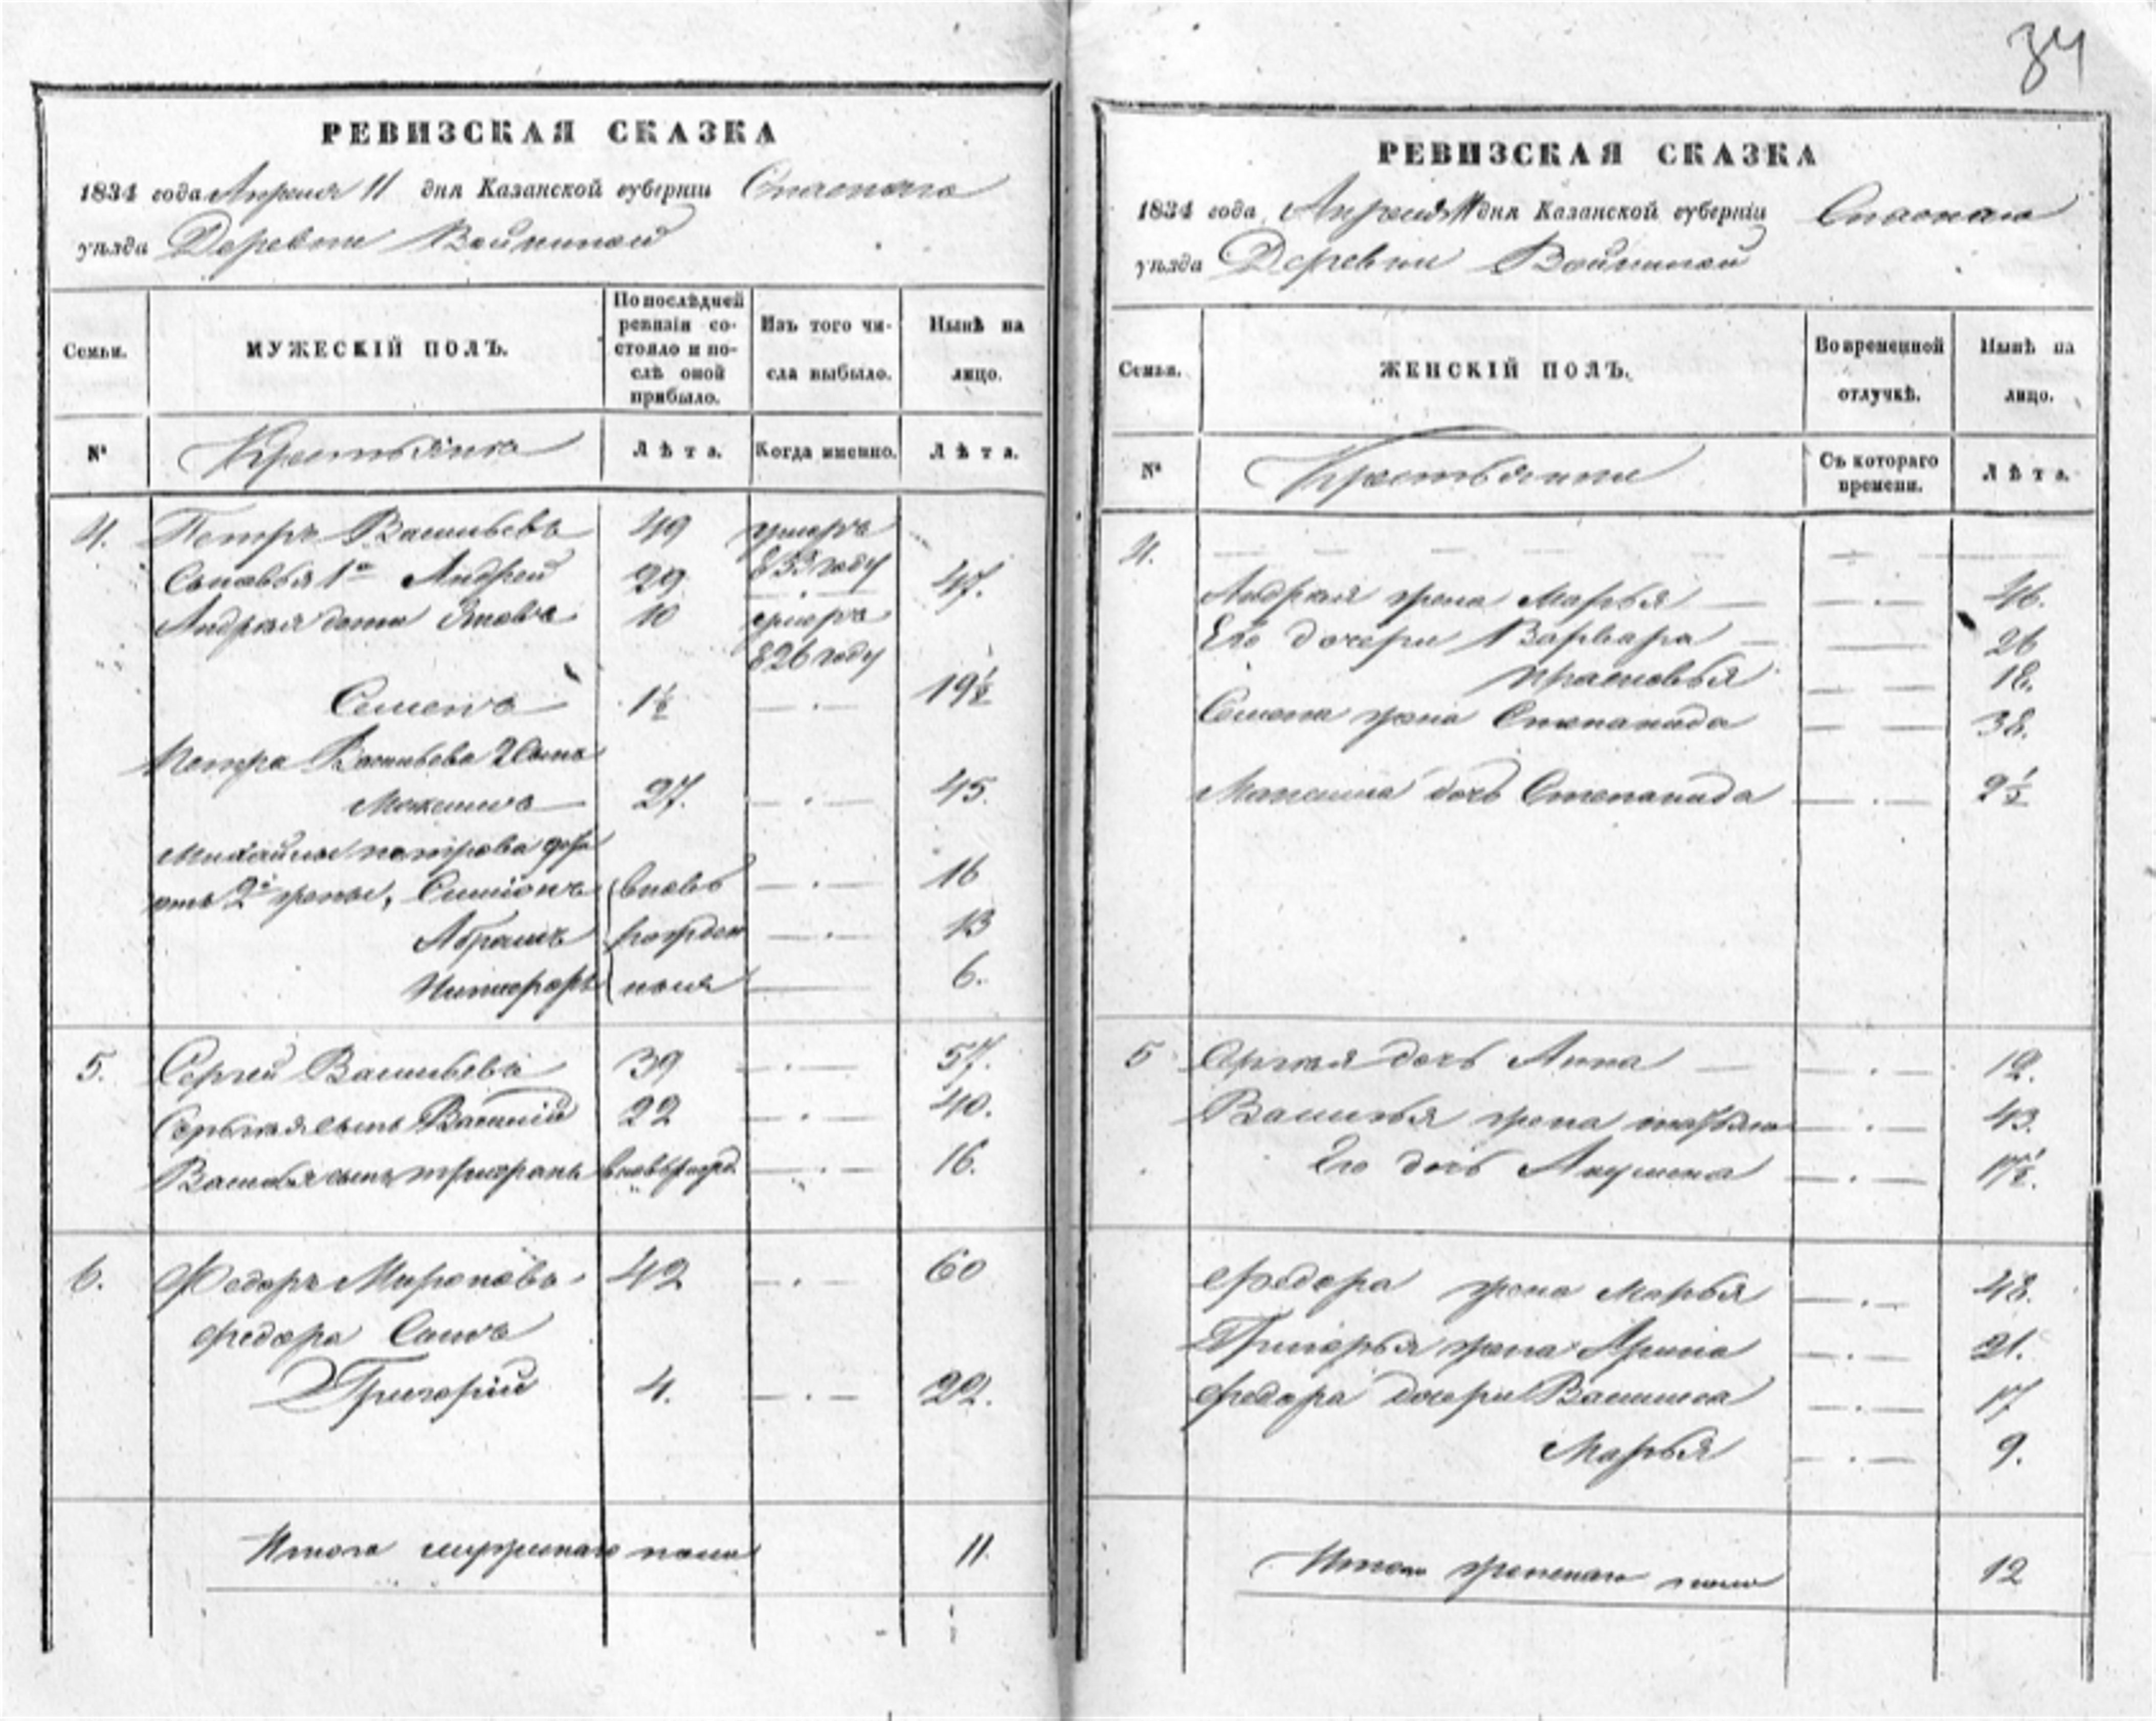 34
РЕВИЗСКАЯ СКАЗКА
1834 года Апреля 11 дня Казанской губернiи Спаскаго
уѣзда Деревни Войкиной
Семьи.
МУЖЕСКІЙ ПОЛЪ.
По послѣдней ревизіи состояло и послѣ оной прибыло.
Изъ того числа выбыло.
Нынѣ на лицо.
№
Крестьяне
Лѣта.
Когда именно.
Лѣта.
4. Петръ Васильевъ 49 умеръ
833 году
Сыновья 1й Андрей 29 47.
Андрея дети 10 умеръ
826 году
Семенъ 1½ 19½
Петра Васильева 2 сынъ
Максимъ 27. 45.
Михайлы петрова
отъ 2й жены, Симіонъ вновь 16
Абрамъ рожден 13
Никифоръ ныя 6.
5. Сергей Васильевъ 39 57.
Сергея сынъ Василій 22 40.
Василья сынъ Трифонъ вновь рожд. 16.
6. Федоръ Мироновъ 42 60
Федора Сынъ
Григорій 4. 22.
Итого мужескаго пола 11
РЕВИЗСКАЯ СКАЗКА
1834 года Апреля 11 дня Казанской губернiи Спаскаго
уѣзда Деревни Войкиной
Семьи.
ЖЕНСКІЙ ПОЛЪ.
Во временной отлучкѣ.
Нынѣ на лицо.
№
Крестьянки
Съ котораго времени.
Лѣта.
4.
Андрея жена Марья 46.
Его дочери Варвара 26
Прасковья 18.
Семена жена Степанида 38.
Максима дочь Степанида 2½
5 Сергея дочь Анна 12.
Василья жена 43.
Его дочь Акулина 17½.
Федора жена Марья 48.
Григорья жена Арина 21.
Федора дочери Василиса 17
Марья 9.
Итого женскаго пола 12